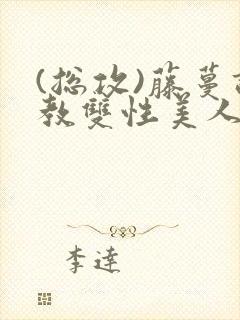 (總攻)藤蔓
教雙性美人
李達